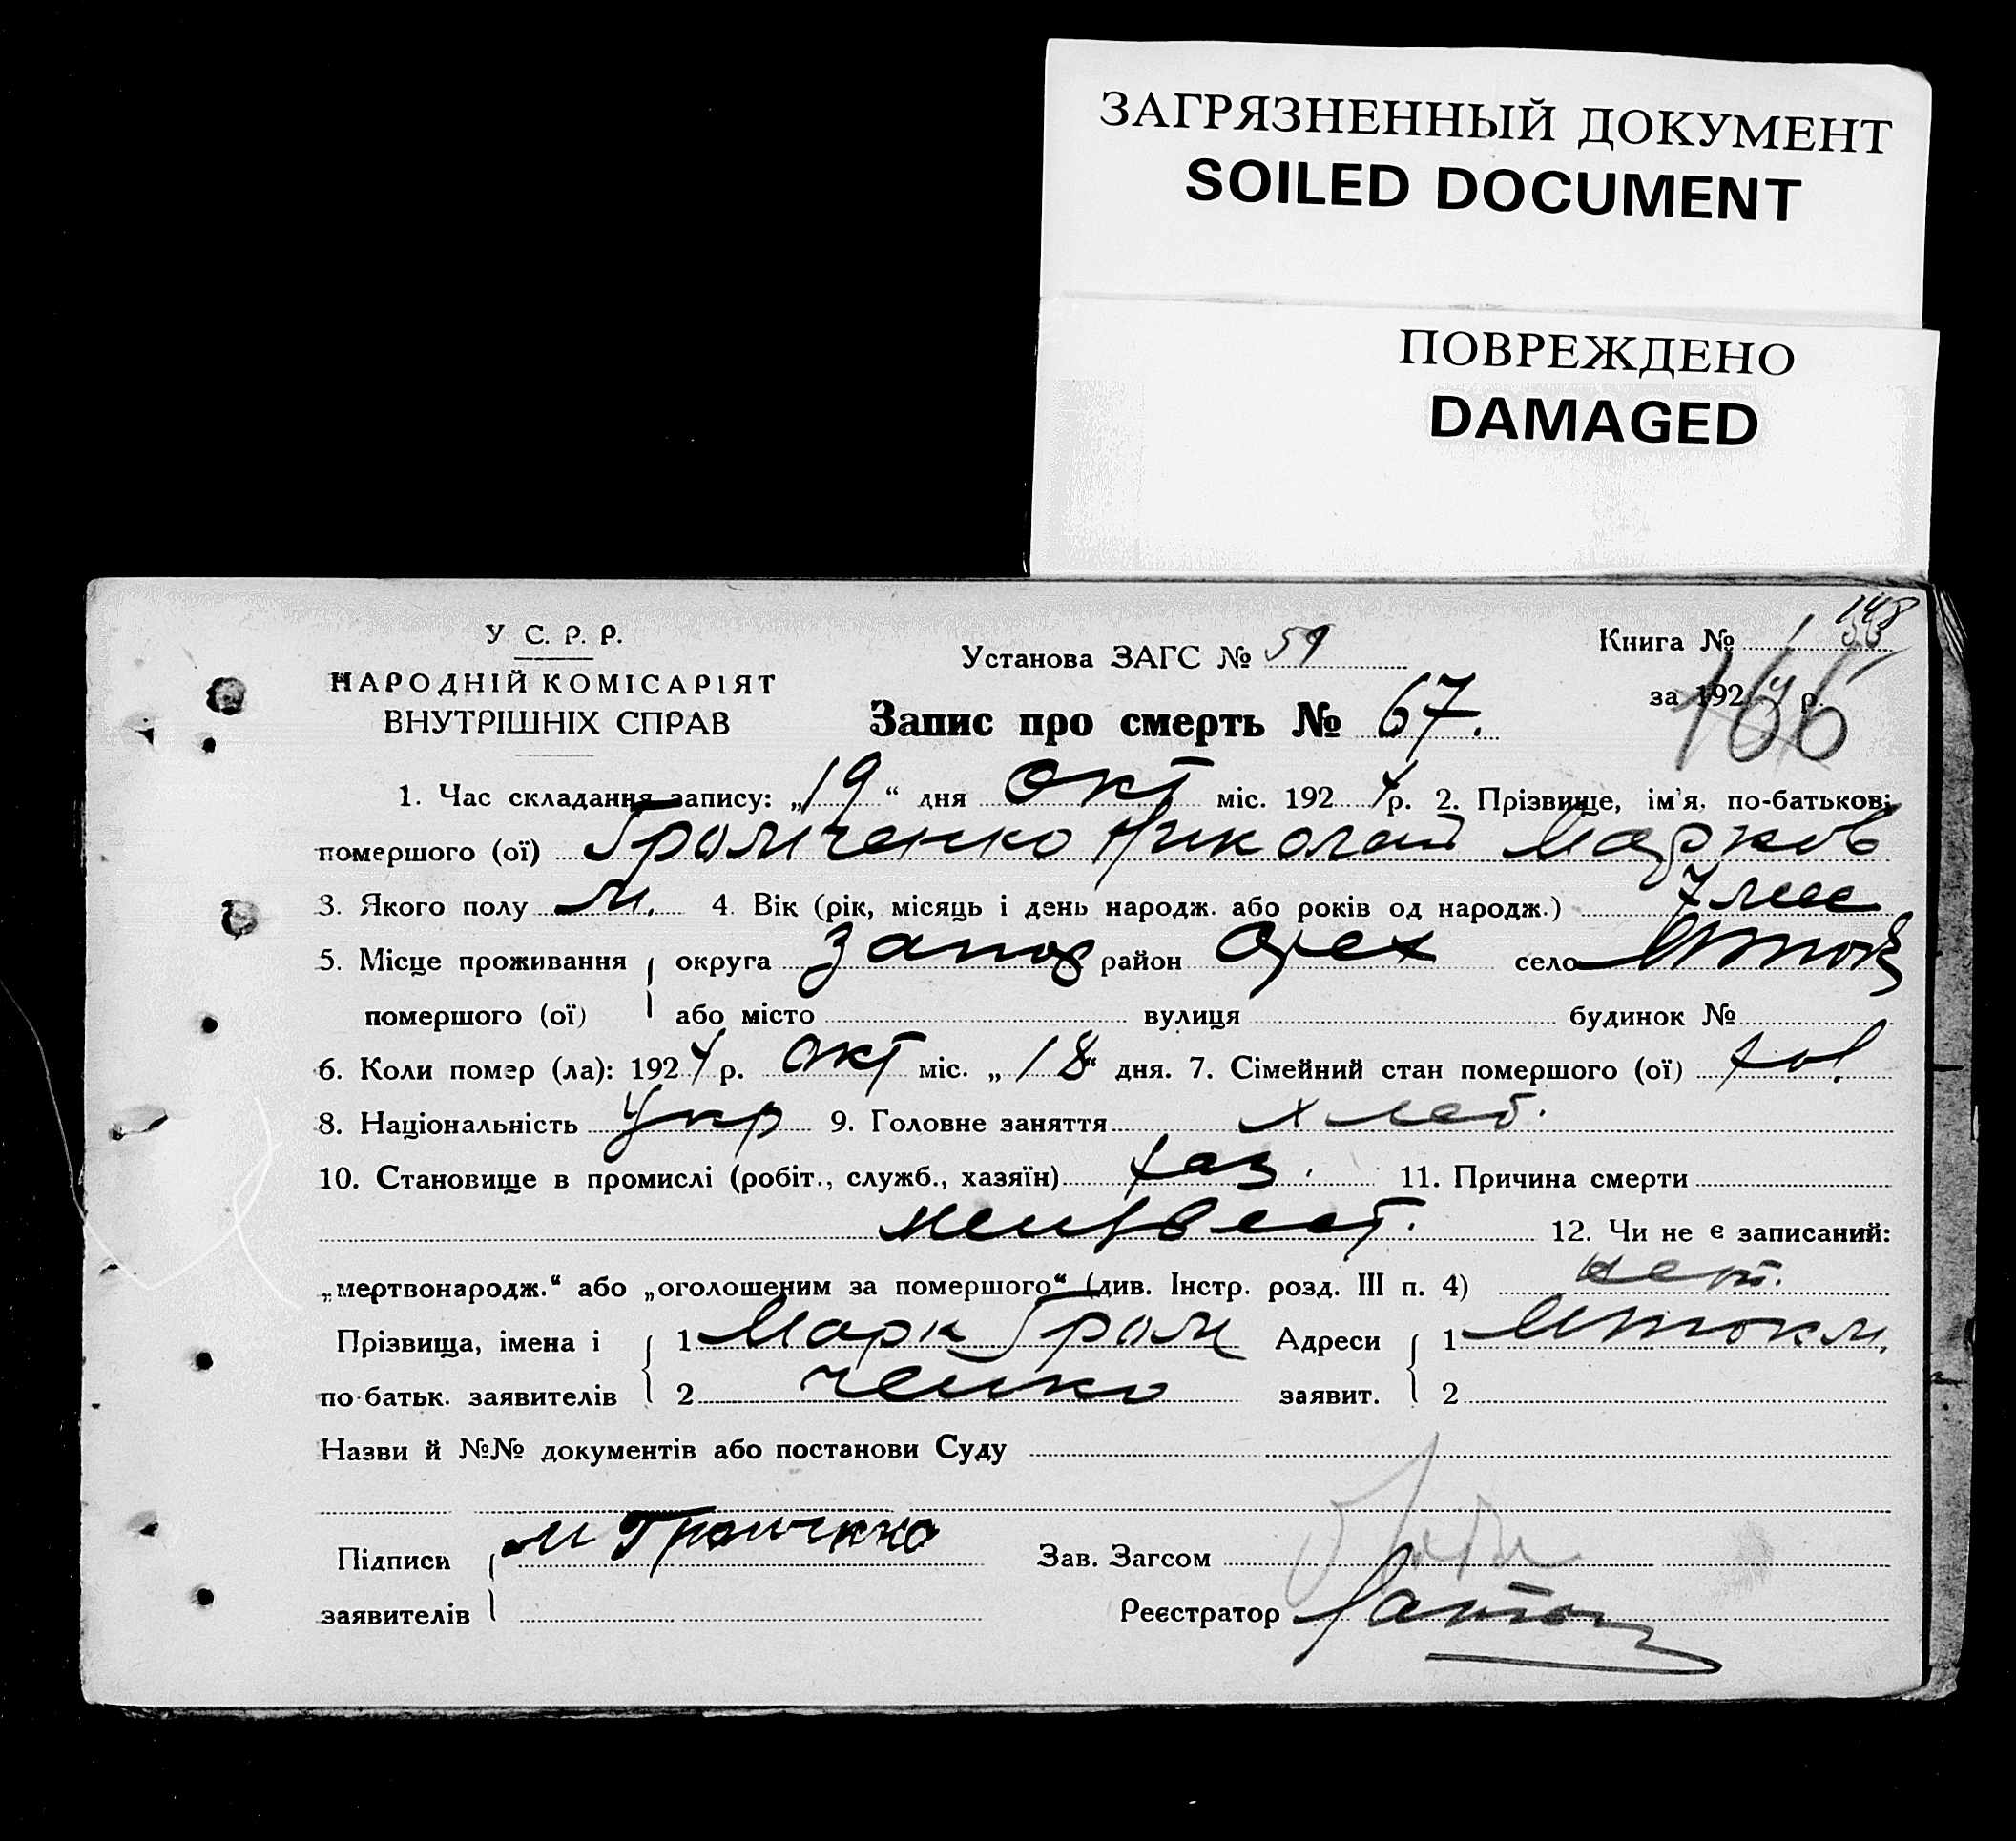 ЗАГРЯЗНЕННЫЙ ДОКУМЕНТ
SOILED DOCUMENT
ПОВРЕЖДЕНО
DAMAGED
У С. Р. Р.
НАРОДНІЙ КОМІСАРІЯТ
ВНУТРІШНІХ СПРАВ
Установа ЗАГС № 59
Книга № 1 148
за 1924 р.
166
Запис про смерть № 67.
1. Час складання запису: „19“ дня Окт міс. 1924 р. 2. Прізвище, ім'я, по-батькові
помершого (ої) Громченко Николай Марков
3. Якого полу м. 4. Вік (рік, місяць і день народж. або років од народж.) 7 мес
5. Місце проживання округа Запор район Орех село
помершого (ої) або місто вулиця будинок №
6. Коли помер (ла): 1924 р. окт міс. „18“ дня. 7. Сімейний стан помершого (ої) хол.
8. Національність Укр 9. Головне заняття хлеб.
10. Становище в промислі (робіт., служб., хазяїн) хаз. 11. Причина смерти
неизвест. 12. Чи не є записаний:
„мертвонародж.“ або „оголошеним за помершого“ (див. Інстр. розд. III п. 4) нет.
Прізвища, імена і 1 Марк Гром Адреси 1
по-батьк. заявителів 2 ченко заявит. 2
Назви й №№ документів або постанови Суду
Підписи М Громченко Зав. Загсом
заявителів Реєстратор